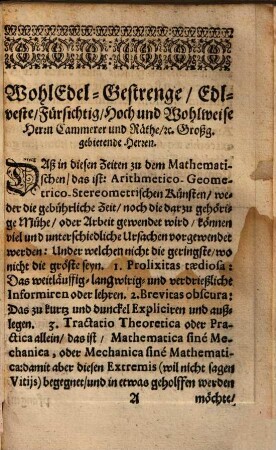 WohlEdel-Gestrenge/ Edl-
veste/Fürsichtig/Hoch und Wohlweise
Herrn Cammerer und Räthe/ꝛc. Großg.
gebietende Herren.
Daß in diesen Zeiten zu dem Mathemati-
schen/das ist: Arithmetico-Geome-
trico-Stereometrischen Künsten/we-
der die gebührliche Zeit/noch die darzu gehöri-
ge Mühe/ oder Arbeit gewendet wird/können
viel und unterschiedliche Ursachen vorgewendet
werden: Under welchen nicht die geringste/wo
nicht die gröste seyn. 1. Prolixitas tædiosa:
Das weitläuffig-langwirig-und verdrießliche
Informiren oder lehren. 2.Brevitas obscura:
Das zu kurtz und dunckel Expliciren und auß-
legen. 3. Tractatio Theoretica oder Pra-
ctica allein/ das ist/ Mathematica sinè Me-
chanica, oder Mechanica sinè Mathemati-
ca:damit aber diesen Extremis (wil nicht sagen
Vitijs) begegnet/und in etwas geholffen werden
A möchte/